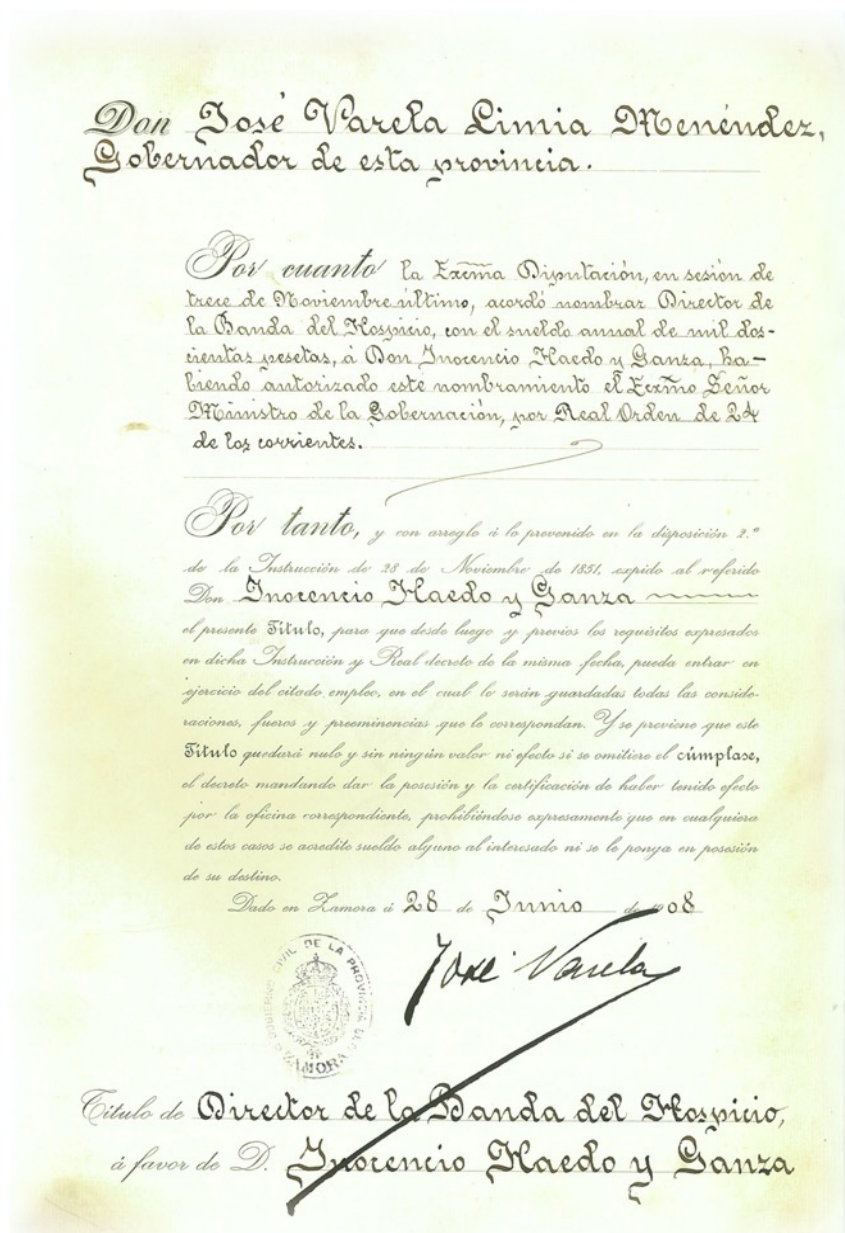 Don José Varela Limia Menéndez,
Gobernador de esta provincia.
Por cuanto la Excma Diputación, en sesión de
trece de Noviembre último, acordó nombrar Director de
la Banda del Hospicio, con el sueldo annal de mil dos-
cientas pesetas, á Don Inocencio Haedo y Ganza, ha-
biendo autorizado este nombramiento el Excmo Señor
Ministro de la Gobernación, por Real Orden de 24
de los corrientes.
Por tanto, y con arreglo á lo prevenido en la disposición 2.ª
de la Instrucción de 28 de Noviembre de 1851, expido al referido
Don Inocencio Haedo y Ganza
el presente Título, para que desde luego y previos los requisitos expresados
en dicha Instrucción y Real decreto de la misma fecha, pueda entrar en
ejercicio del citado empleo, en el cual le serán guardadas todas las conside-
raciones, fueros y preeminencias que le correspondan. Y se previene que este
Título quedará nulo y sin ningún valor ni efecto si se omitiere el cúmplase,
el decreto mandando dar la posesión y la certificación de haber tenido efecto
por la oficina correspondiente, prohibiéndose expresamente que en cualquiera
de estos casos se acredite sueldo alguno al interesado ni se le ponga en posesión
de su destino.
Dado en Zamora á 28 de Junio de 1908
José Varela
GOBIERNO CIVIL DE LA PROVINCIA DE ZAMORA
Título de Director de la Banda del Hospicio,
á favor de D. Inocencio Haedo y Ganza